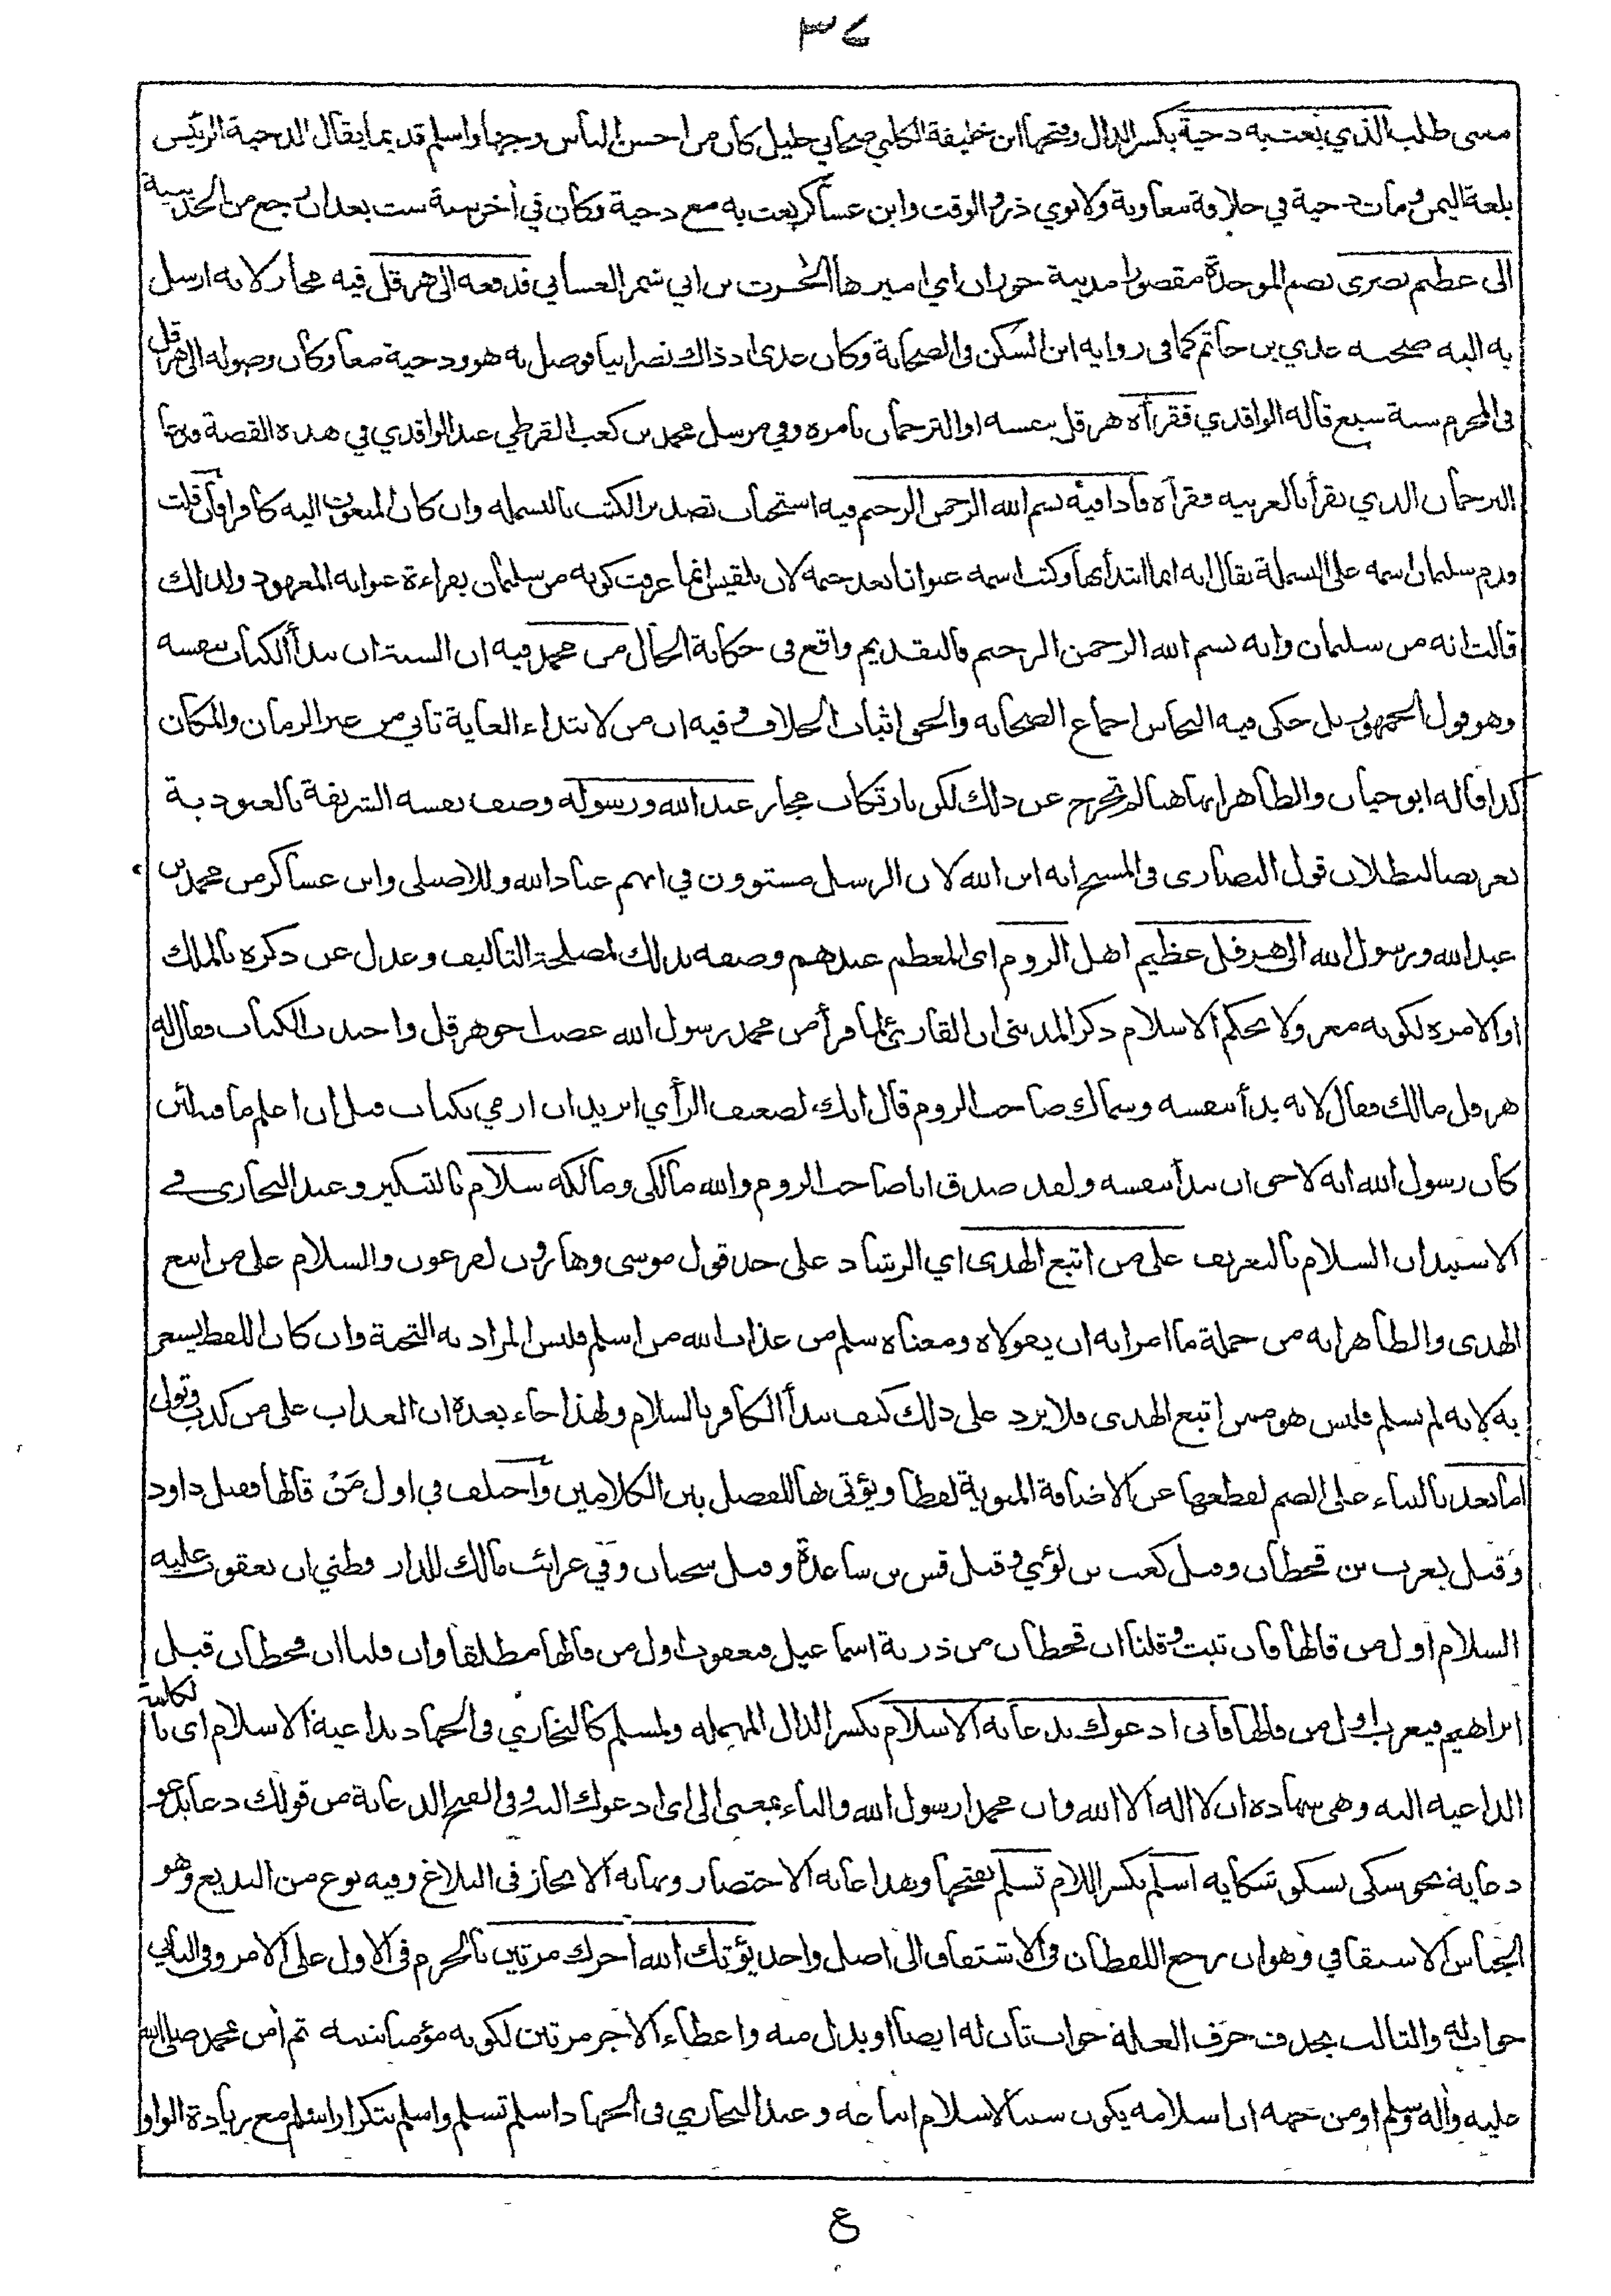 ٣٤
معنى طلب الذي بعث به دحية بكسر الدال وفتحها ابن خليفة الكلبي صحابي جليل كان من احسن الناس وجها واسلم قديما يقال الدحية الرئيس
بلغة اليمن ومات دحية في خلافة معاوية ولابوي ذر والوقت وابن عساكر بعث به مع دحية وكان في أخر سنة ست بعد ان رجع من الحديبية
الى عظيم بصرى بضم الموحدة مقصورا مدينة حوران اي اميرها الحرث بن ابي شمر الغساني فدفعه الى هرقل فيه مجاز لانه ارسل
به اليه صحبة عدي بن حاتم كما في رواية ابن السكن في الصحابة وكان عدى اذ ذاك نصرانيا فوصل به هو ودحية معا وكان وصوله الى هرقل
في المحرم سنة سبع قاله الواقدي فقرأه هرقل بنفسه او الترجمان بامره وفي مرسل محمد بن كعب القرظي عند الواقدي في هذه القصة فدعا
الترجمان الذي يقرأ بالعربية فقرأه فاذا فيه بسم الله الرحمن الرحيم فيه استحباب تصدير الكتب بالبسملة وان كان المبعوث اليه كافرا فان قلت
قدم سليمان اسمه على البسملة يقال انه انما ابتدأ بها وكتب اسمه عنوانا بعد ختمه لان بلقيس انما عرفت كونه من سليمان بقراءة عنوانه المعهود ولذلك
قالت انه من سليمان وانه بسم الله الرحمن الرحيم فالتقديم واقع في حكاية الحال من محمد فيه ان السنة ان يبدأ الكتاب بنفسه
وهو قول الجمهور بل حكى فيه النحاس اجماع الصحابة والحق اثبات الخلاف وفيه ان من لابتداء الغاية تاتي من غير الزمان والمكان
كذا قاله ابو حيان والظاهر انها هنا لم تخرج عن ذلك لكن بارتكاب مجاز عبد الله ورسوله وصف نفسه الشريفة بالعبودية
تعريضا لبطلان قول النصارى في المسيح انه ابن الله لان الرسل مستوون في انهم عباد الله وللاصيلي وابن عساكر من محمد بن
عبد الله ورسول الله الى هرقل عظيم اهل الروم اى المعظم عندهم وصفه بذلك لمصلحة التاليف وعدل عن ذكره بالملك
او الامرة لكونه معزولا بحكم الاسلام ذكر المديني ان القارئ لما قرأ من محمد رسول الله غضب اخو هرقل واجتذب الكتاب فقال له
هرقل مالك فقال لانه بدأ بنفسه وسماك صاحب الروم قال انك لضعيف الرأي اتريد ان ارمي بكتاب قبل ان اعلم ما فيه لئن
كان رسول الله انه لاحق ان يبدأ بنفسه ولقد صدق انا صاحب الروم والله مالكي ومالكه سلام بالتنكير وعند البخارى في
الاستيذان السلام بالتعريف على من اتبع الهدى اي الرشاد على حد قول موسى وهارون لفرعون والسلام على من اتبع
الهدى والظاهر انه من جملة ما امرا به ان يقولاه ومعناه سلم من عذاب الله من اسلم فليس المراد به التحية وان كان اللفظ يشعر
به لانه لم يسلم فليس هو ممن اتبع الهدى فلا يرد على ذلك كيف يبدأ الكافر بالسلام ولهذا جاء بعده ان العذاب على من كذب وتولى
اما بعد بالبناء على الضم لقطعها عن الاضافة المنوية لفظا ويؤتى بها للفصل بين الكلامين واختلف في اول مَنْ قالها فقيل داود
وقيل يعرب بن قحطان وقيل كعب بن لؤي وقيل قس بن ساعدة وقيل سحبان وفي غرائب مالك للدار قطني ان يعقوب عليه
السلام اول من قالها فان ثبت وقلنا ان قحطان من ذرية اسماعيل فيعقوب اول من قالها مطلقا وان قلنا ان قحطان قبل
ابراهيم فيعرب اول من قالها فانى ادعوك بدعاية الاسلام بكسر الدال المهمله ولمسلم كالبخاري في الجهاد بداعية الاسلام اى بالكلمة
الداعية اليه وهى شهادة ان لا اله الا الله وان محمدا رسول الله والباء بمعنى الى اى ادعوك اليه وفي الفتح الدعاية من قولك دعا يدعو
دعاية نحو شكى يشكو شكاية اسلم بكسر اللام تسلم بفتحها وهذا غاية الاختصار ونهاية الايجاز في البلاغ وفيه نوع من البديع وهو
الجناس الاشتقاقي وهو ان يرجع اللفظان في الاشتقاق الى اصل واحد يؤتك الله اجرك مرتين بالجزم في الاول على الامر وفي الثاني
جواب له والثالث بحذف حرف العلة جواب ثان له ايضا او بدل منه واعطاء الاجر مرتين لكونه مؤمنا بنبيه ثم آمن بمحمد صلى الله
عليه وآله وسلم او من جهه ان اسلامه يكون سببا لاسلام اتباعه وعند البخاري في الجهاد اسلم تسلم واسلم بتكرار اسلم مع زيادة الواو
ع